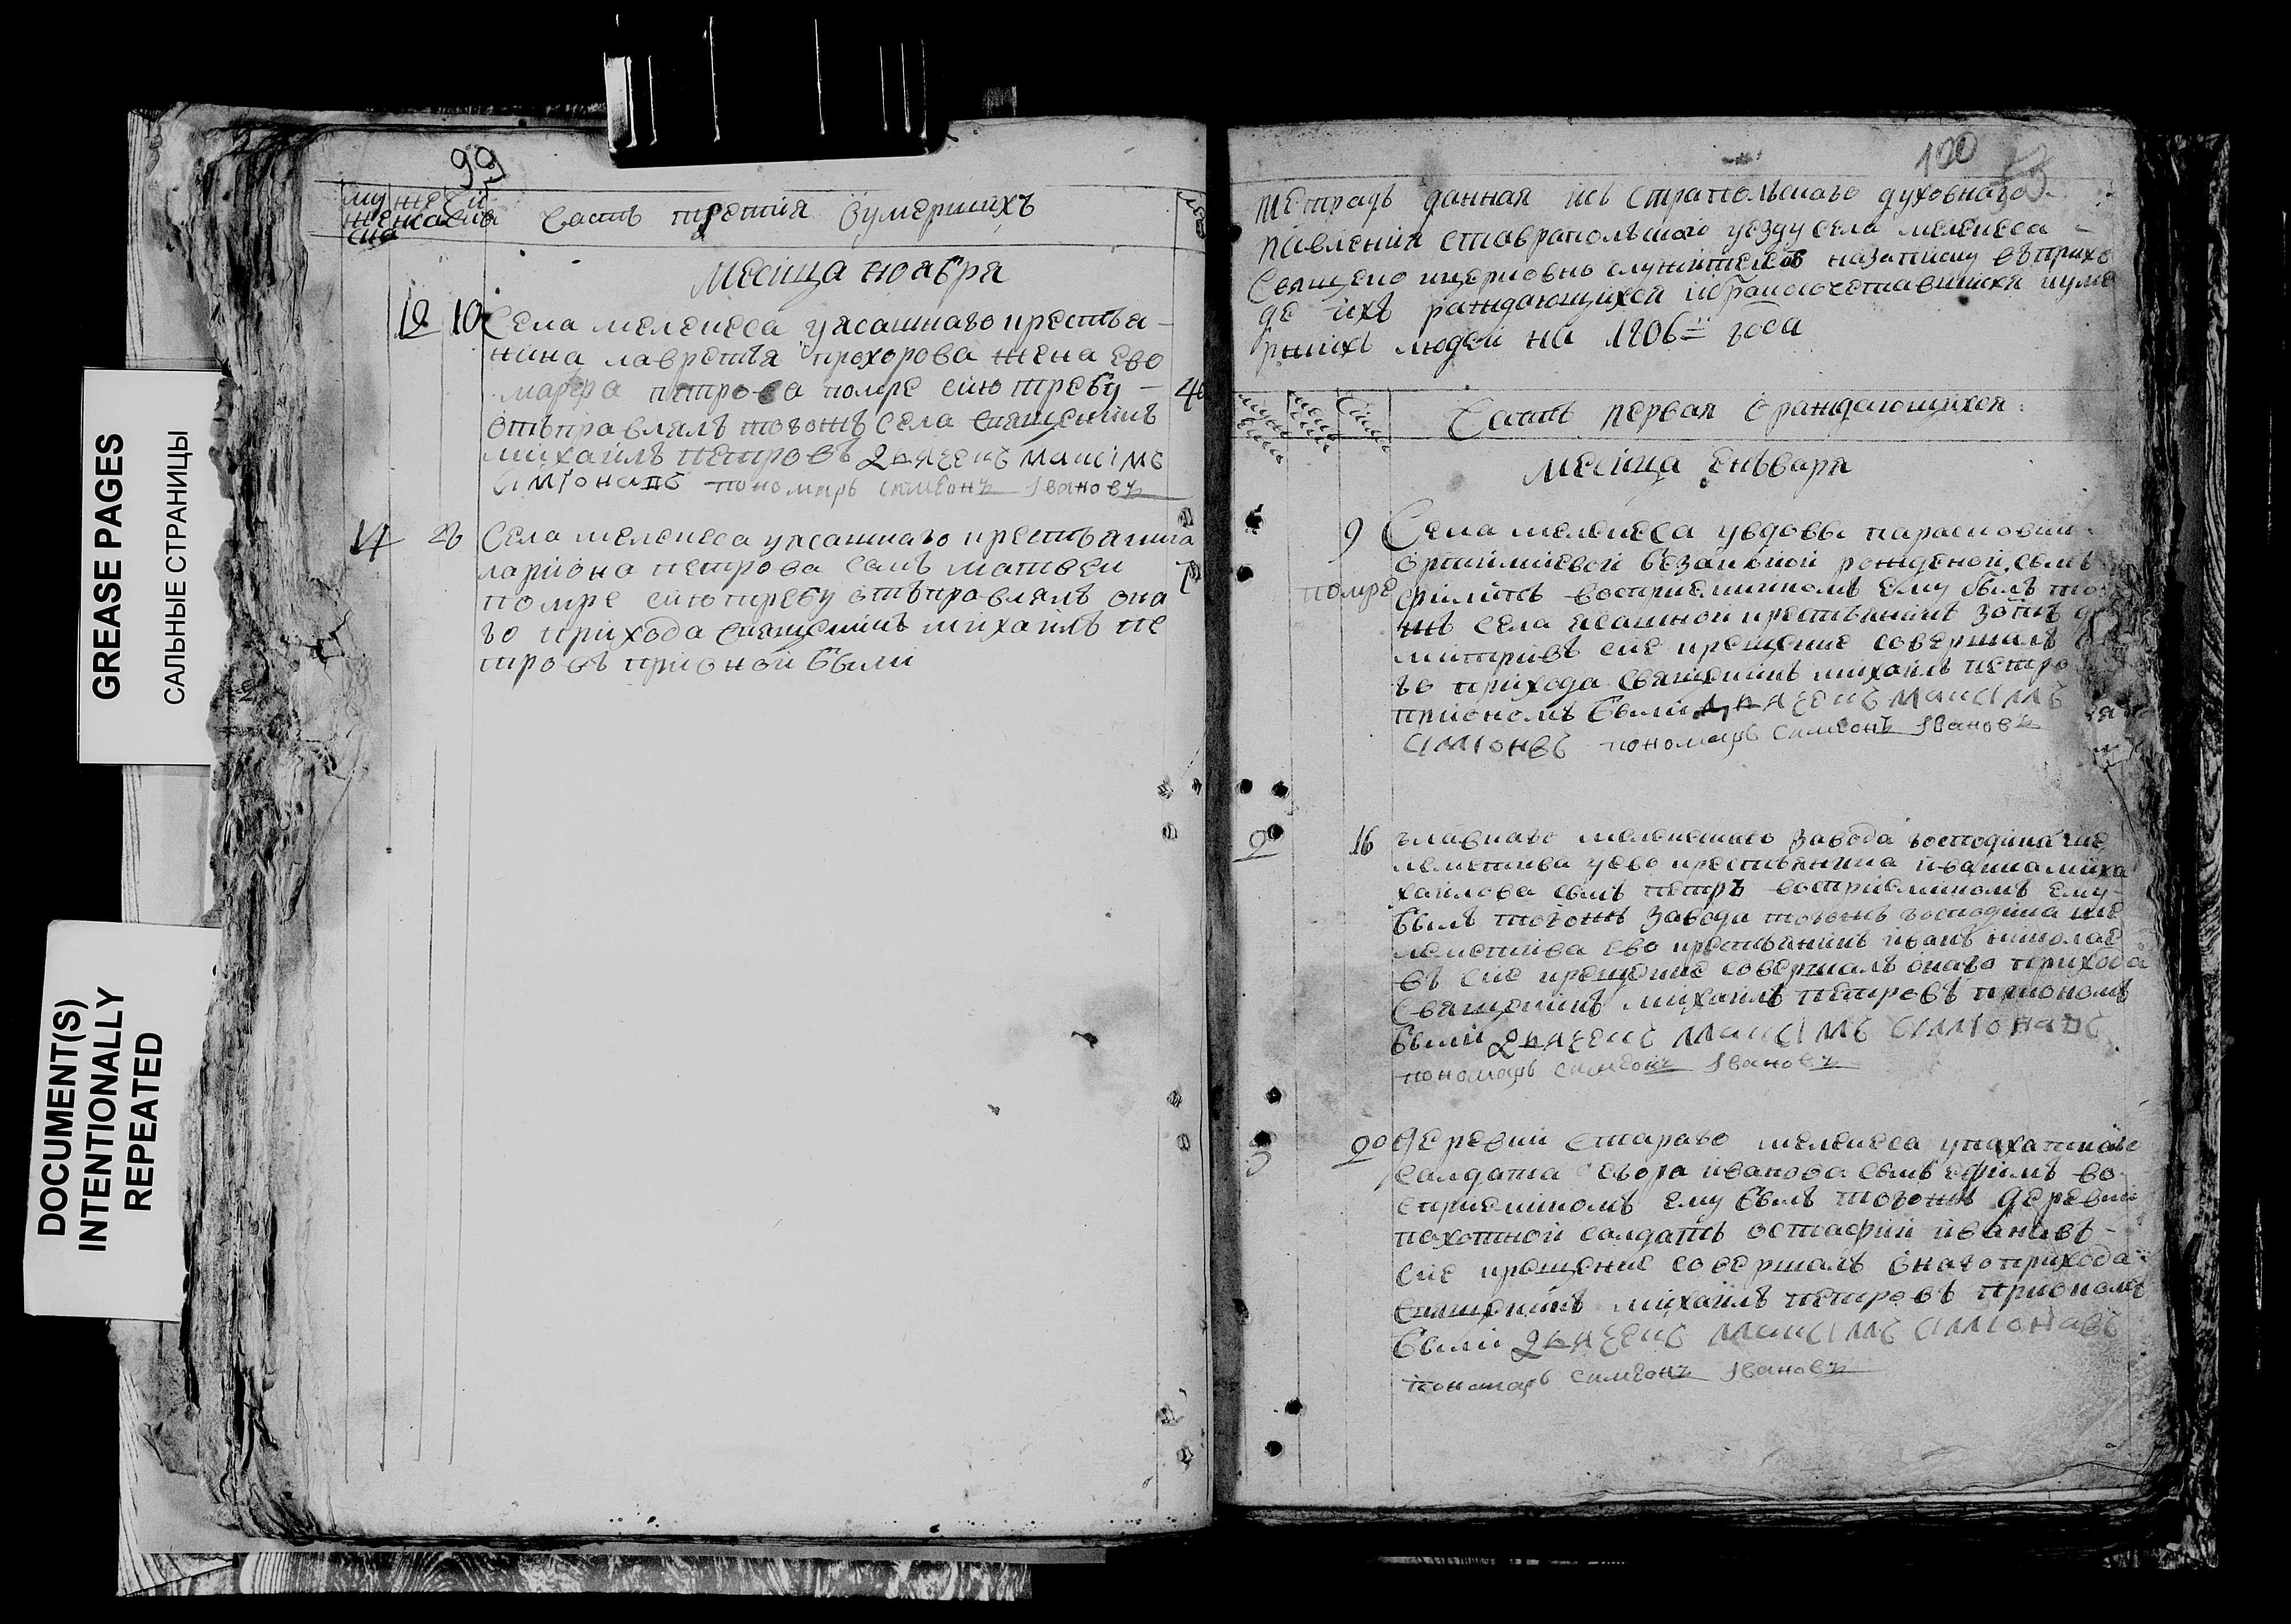 GREASE PAGES
САЛЬНЫЕ СТРАНИЦЫ
DOCUMENT(S)
INTENTIONALLY
REPEATED
99
мужеска
женска
Часть третия оумершихъ
месяца ноября
10 10 Села мелекеса уясашнаго крестья-
нина лаврентья прохорова жена ево
марфа петрова помре сию требу 40
отьправлялъ тогожъ села священикъ
михаилъ петровъ диячекъ максимъ
симионавъ пономарь симеонъ Ивановъ
14 26 Села мелекеса уясашнаго крестьянина
лариона петрова сынъ матвеи
помре сию требу отъправлялъ она
го прихода священикъ михаилъ пе
тровъ прионой были
100
тетрадь данная исъ страпольскаго духовнаго
павления ставрапольской уезду села мелекеса
священо ицерковно служителей назаписку въприхо
де ихъ раждающихся ибракосочетавшихся иуме
ршихъ людей на 1806 года
Часть первая ораждающихся
месяца еньваря
9 Села мелекеса увдовы парасковии
помре
филипъ восприемникомъ ему былъ то
жъ села ясашной крестьянинъ
митриевъ сие крещение совершалъ
го прихода священикъ михаилъ петро
приономъ были диячекъ максимъ
симионвъ пономарь симеонъ Ивановъ
2 16 главнаго мелекескаго завода господина
уево крестьянина ивана миха
хаилова сынъ петръ восприемникомъ ему
былъ тогожъ завода тогожъ господина
ево крестьянинъ иванъ николае
въ сие крещение совершалъ онаго прихода
священикъ михаилъ петровъ приономъ
были диячекъ максимъ симионавъ
пономарь симеонъ Ивановъ
3 20 деревни стараго мелекеса упахатнаго
салдата егора иванова сынъ ефимъ во
сприемникомъ ему былъ тогожъ деревни
пахотной салдатъ остафий ивановъ
сие крещение совершалъ онаго прихода
священикъ михаилъ петровъ приономъ
были диячекъ максимъ симионавъ
пономарь симеонъ Ивановъ